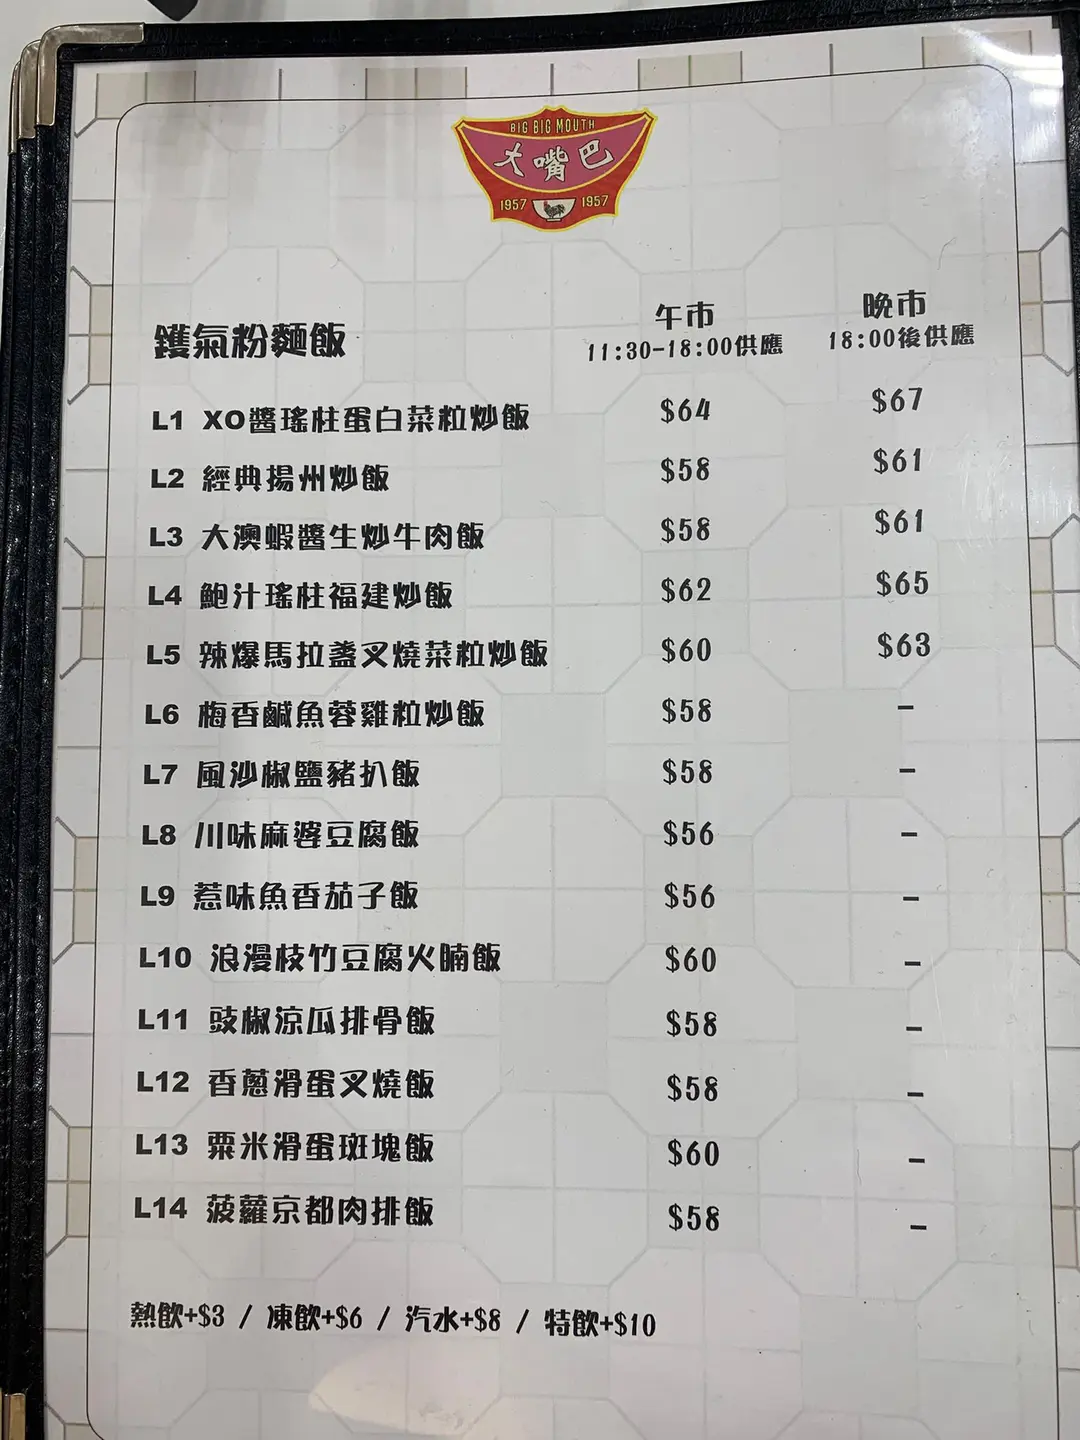 BIG BIG MOUTH
大嘴巴
1957 1957
鑊氣粉麵飯 午市 晚市
11:30-18:00供應 18:00後供應
L1 XO醬瑤柱蛋白菜粒炒飯 $64 $67
L2 經典揚州炒飯 $58 $61
L3 大澳蝦醬生炒牛肉飯 $58 $61
L4 鮑汁瑤柱福建炒飯 $62 $65
L5 辣爆馬拉盞叉燒菜粒炒飯 $60 $63
L6 梅香鹹魚蓉雞粒炒飯 $58 -
L7 風沙椒鹽豬扒飯 $58 -
L8 川味麻婆豆腐飯 $56 -
L9 惹味魚香茄子飯 $56 -
L10 浪漫枝竹豆腐火腩飯 $60 -
L11 豉椒涼瓜排骨飯 $58 -
L12 香蔥滑蛋叉燒飯 $58 -
L13 粟米滑蛋斑塊飯 $60 -
L14 菠蘿京都肉排飯 $58 -
熱飲+$3 / 凍飲+$6 / 汽水+$8 / 特飲+$10